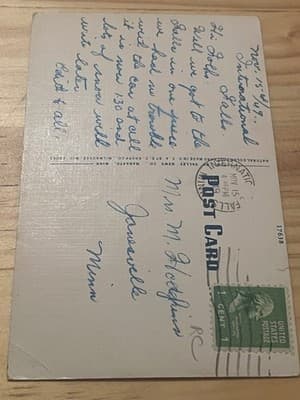 Nov. 15-49.
International
Falls.
Hi Folks
Well we got to the
Falls in one piece
we had no trouble
with the car at all
it is now 130 and
lots of snow will
write later
& all.
17638
POST CARD
NOV 15
PM
MINN
UNITED STATES
POSTAGE
1 CENT 1
Mrs. M. Hodgkins
Janesville
Minn
RC